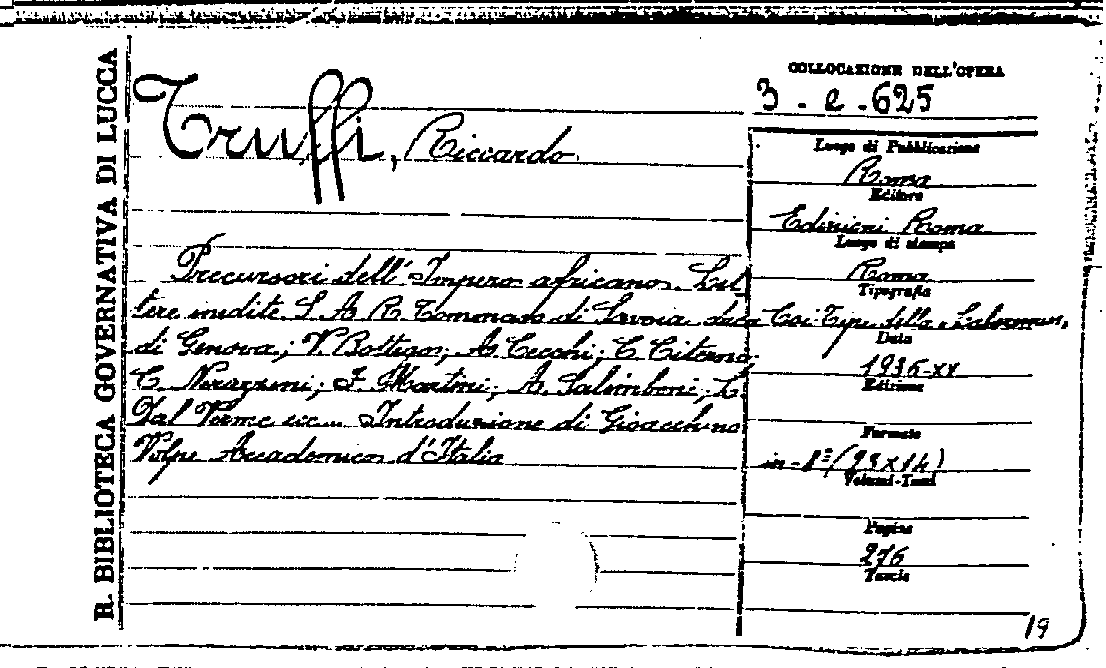 R. BIBLIOTECA GOVERNATIVA DI LUCCA
Truffi, Riccardo
Precursori dell'Impero africano. Let
tere inedite S. A. R. Tommaso di Savoia duca
di Genova; V. Bottego; A. Cecchi; C. Citerni;
C. Nerazzini; F. Martini; A. Salimbeni; L.
Dal Verme ecc... Introduzione di Gioacchino
Volpe Accademico d'Italia
COLLOCAZIONE DELL'OPERA
3 - e - 625
Luogo di Pubblicazione
Roma
Editore
Edizioni Roma
Luogo di stampa
Roma
Tipografia
Tip. della
Data
1936-XV
Edizione
Formato
in-8°
Volumi-Tomi
Pagine
276
Tavole
19